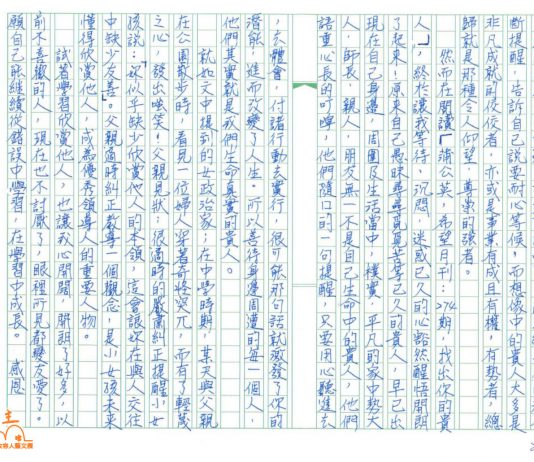 斷提醒，告訴自己說要耐心等候，而想像中的貴人大多是
非凡成就的佼佼者，亦或是事業有成且有權，有勢者，總
歸就是那種令人仰望，尊崇的強者。
然而在閱讀「蒲公英，希望月刊：274期，找出你的貴
人」，終於讓我等待，沉悶，迷惑已久的心豁然醒悟開朗
了起來！原來自己愚昧尋尋覓覓苦等已久的貴人，早已出
現在自己身邊，周圍及生活當中，樸實，平凡的家中勢大
人，師長，親人，朋友無一不是自己生命中的貴人，他們
語重心長的叮嚀，他們隨口的一句提醒，只要用心聽進去
，去體會，付諸行動去實行，很可能那句話就激發了你的
潛能，進而改變了人生。所以善待身邊周遭的每一個人，
他們其實就是我們生命真實的貴人。
就如文中提到的女政治家；在中學時期，某天與父親
在公園散步時，看見一位婦人穿著奇怪突兀，而有了輕蔑
之心，發出嗤笑。父親見狀；很適時的嚴肅糾正提醒小女
孩說：「妳似乎缺少欣賞他人的本領，這會讓妳在與人交往
中缺少友善」父親適時糾正教導一個觀念，是小女孩未來
懂得欣賞他人，成為優秀領導人的重要人物。
試著學習欣賞他人，也讓我心開闊，開朗了好多，以
前不喜歡的人，現在也不討厭了，眼裡所見都變友愛了。
願自己能繼續從錯誤中學習，在學習中成長。感恩